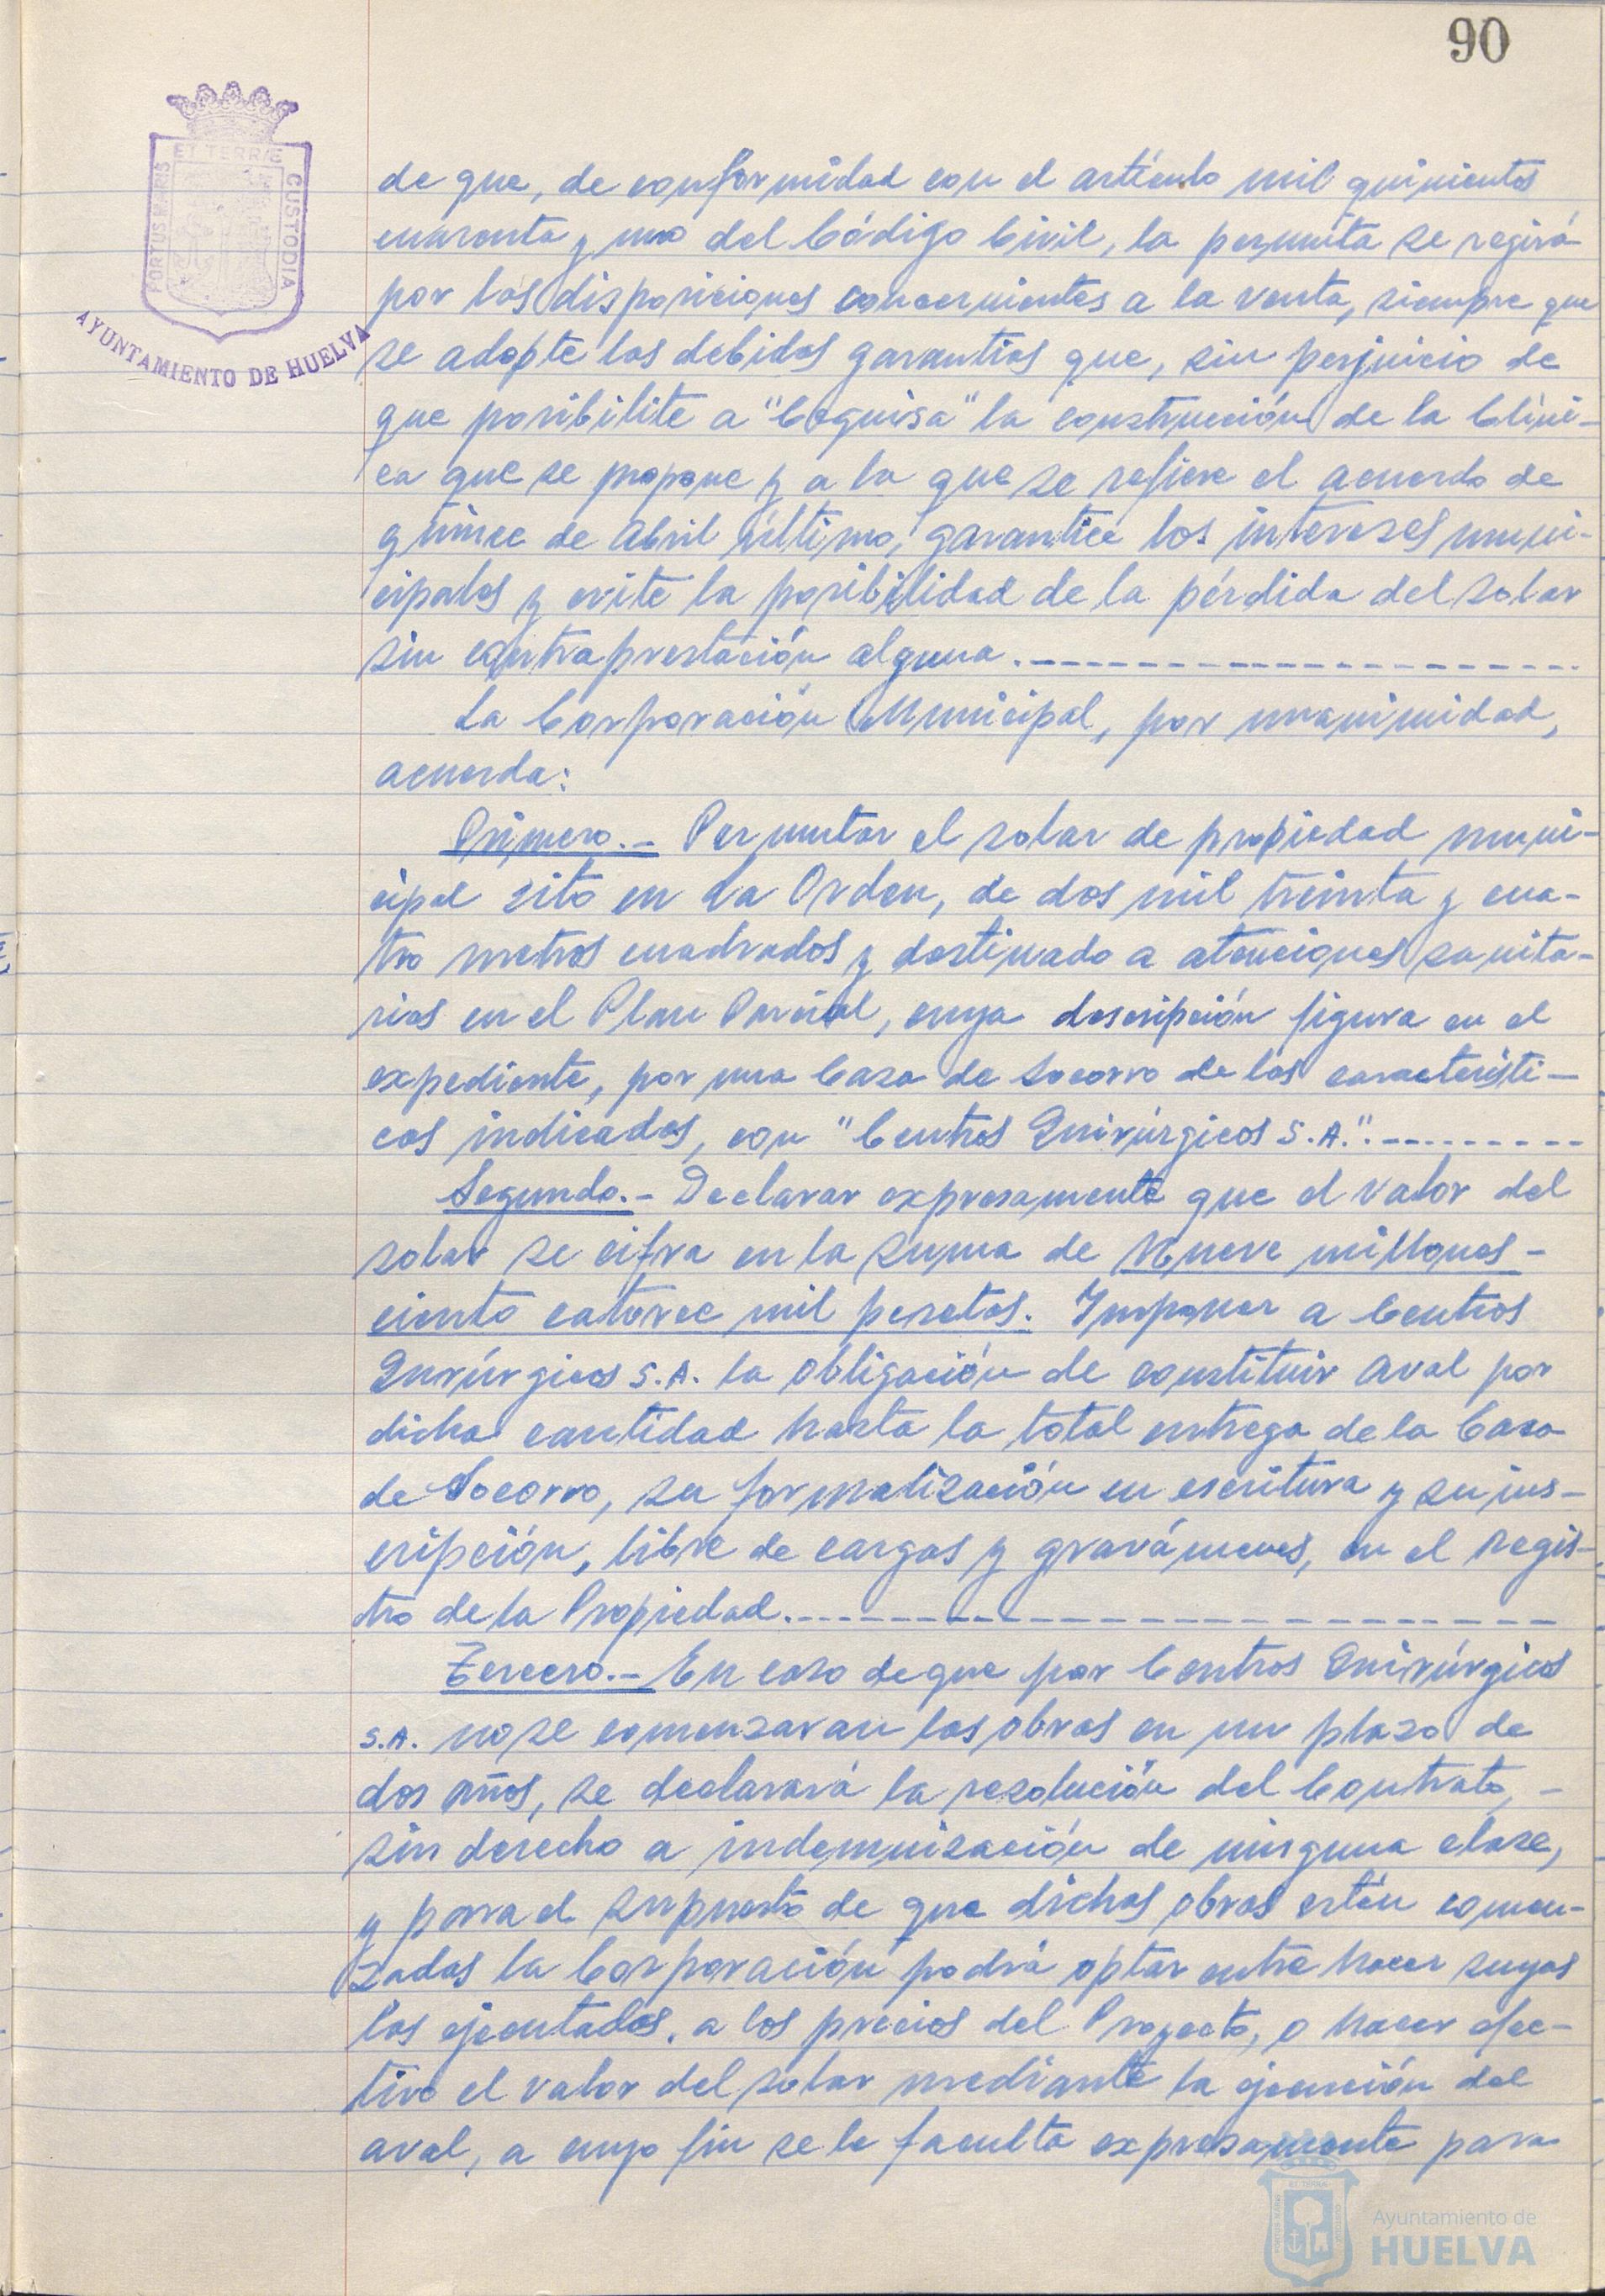 90
ET TERRÆ
PORTUS MARIS
CUSTODIA
AYUNTAMIENTO DE HUELVA
de que, de conformidad con el artículo mil quinientos
cuarenta y uno del Código Civil, la permuta se regirá
por las disposiciones concernientes a la venta, siempre que
se adopte las debidas garantías que, sin perjuicio de
que posibilite a "Cequisa" la construcción de la Clíni-
ca que se propone y a la que se refiere el acuerdo de
quince de Abril último, garantice los intereses muni-
cipales y evite la posibilidad de la pérdida del solar
sin contraprestación alguna.
La Corporación Municipal, por unanimidad,
acuerda:
Primero.- Permutar el solar de propiedad muni-
cipal sito en La Orden, de dos mil treinta y cua-
tro metros cuadrados y destinado a atenciones sanita-
rias en el Plan Parcial, cuya descripción figura en el
expediente, por una Casa de Socorro de las característi-
cas indicadas, con "Centros Quirúrgicos S.A.".
Segundo.- Declarar expresamente que el valor del
solar se cifra en la suma de Nueve millones-
ciento catorce mil pesetas. Imponer a Centros
Quirúrgicos S.A. la obligación de constituir aval por
dicha cantidad hasta la total entrega de la Casa
de Socorro, su formalización en escritura y su ins-
cripción, libre de cargas y gravámenes, en el Regis-
tro de la Propiedad.
Tercero.- En caso de que por Centros Quirúrgicos
S.A. no se comenzaran las obras en un plazo de
dos años, se declarará la resolución del Contrato,-
sin derecho a indemnización de ninguna clase,
y para el supuesto de que dichas obras estén comen-
zadas la Corporación podrá optar entre hacer suyas
las ejecutadas, a los precios del Proyecto, o hacer efec-
tivo el valor del solar mediante la ejecución del
aval, a cuyo fin se le faculta expresamente para
Ayuntamiento de
HUELVA